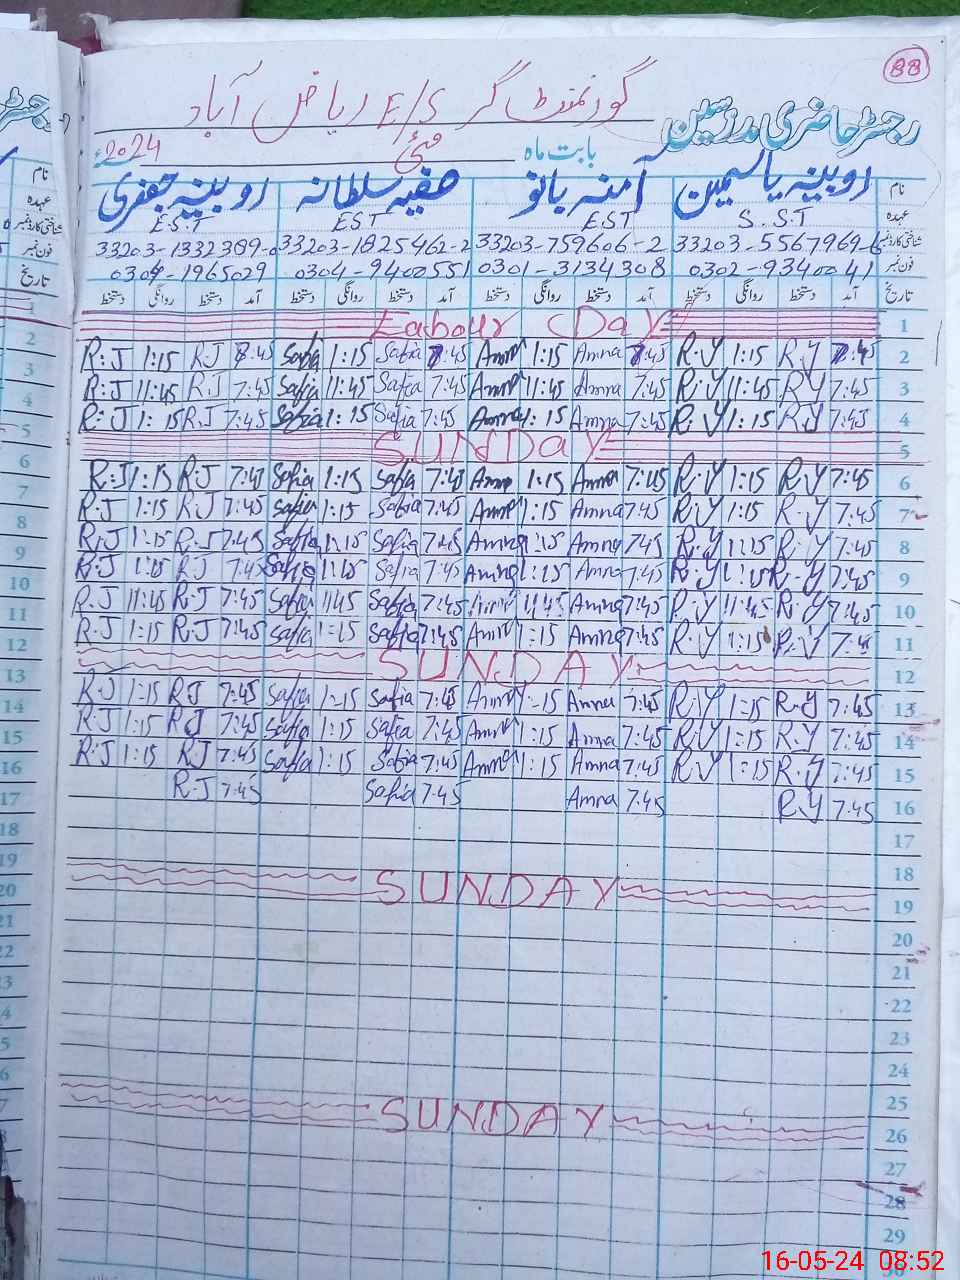 88
گورنمنٹ گرلز E/S ریاض آباد
رجسٹر حاضری مدرسین
بابت ماہ مئی 2024ء
نام روبینہ یاسمین آمنہ بانو صفیہ سلطانہ روبینہ جعفری
عہدہ S.S.T EST EST E.S.T
شناختی کارڈ نمبر 33203-5567969-6 33203-759606-2 33203-1825462-2 33203-1332389-0
فون نمبر 0302-9340041 0301-3134308 0304-9400551 0304-1965029
تاریخ آمد دستخط روانگی دستخط آمد دستخط روانگی دستخط آمد دستخط روانگی دستخط آمد دستخط روانگی دستخط
Labour Day 1
R:J 1:15 R.J 7:45 Safia 1:15 Safia 7:45 Amna 1:15 Amna 7:45 R.Y 1:15 R.Y 7:45 2
R:J 11:45 R.J 7:45 Safia 11:45 Safia 7:45 Amna 11:45 Amna 7:45 R.Y 11:45 R.Y 7:45 3
R:J 1:15 R.J 7:45 Safia 1:15 Safia 7:45 Amna 1:15 Amna 7:45 R.Y 1:15 R.Y 7:45 4
SUNDAY 5
R:J 1:15 R.J 7:45 Safia 1:15 Safia 7:45 Amna 1:15 Amna 7:45 R.Y 1:15 R.Y 7:45 6
R.J 1:15 R.J 7:45 Safia 1:15 Safia 7:45 Amna 1:15 Amna 7:45 R.Y 1:15 R.Y 7:45 7
R.J 1:15 R.J 7:45 Safia 1:15 Safia 7:45 Amna 1:15 Amna 7:45 R.Y 1:15 R.Y 7:45 8
R.J 1:15 R.J 7:45 Safia 1:15 Safia 7:45 Amna 1:15 Amna 7:45 R.Y 1:15 R.Y 7:45 9
R.J 11:45 R.J 7:45 Safia 11:45 Safia 7:45 Amna 11:45 Amna 7:45 R.Y 11:45 R.Y 7:45 10
R.J 1:15 R.J 7:45 Safia 1:15 Safia 7:45 Amna 1:15 Amna 7:45 R.Y 1:15 R.Y 7:45 11
SUNDAY 12
R.J 1:15 R.J 7:45 Safia 1:15 Safia 7:45 Amna 1:15 Amna 7:45 R.Y 1:15 R.Y 7:45 13
R.J 1:15 R.J 7:45 Safia 1:15 Safia 7:45 Amna 1:15 Amna 7:45 R.Y 1:15 R.Y 7:45 14
R.J 1:15 R.J 7:45 Safia 1:15 Safia 7:45 Amna 1:15 Amna 7:45 R.Y 1:15 R.Y 7:45 15
R.J 7:45 Safia 7:45 Amna 7:45 R.Y 7:45 16
17
18
SUNDAY 19
20
21
22
23
24
25
SUNDAY 26
27
28
29
16-05-24 08:52